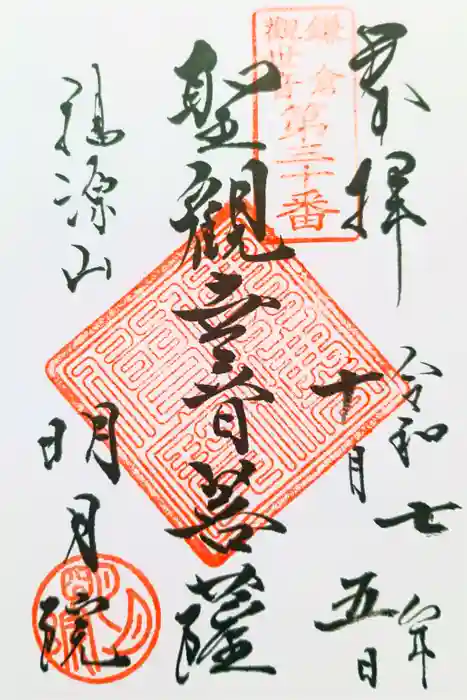 奉拝
令和七年
十月五日
鎌倉
観世音
第三十番
聖観世音菩薩
福源山
明月院